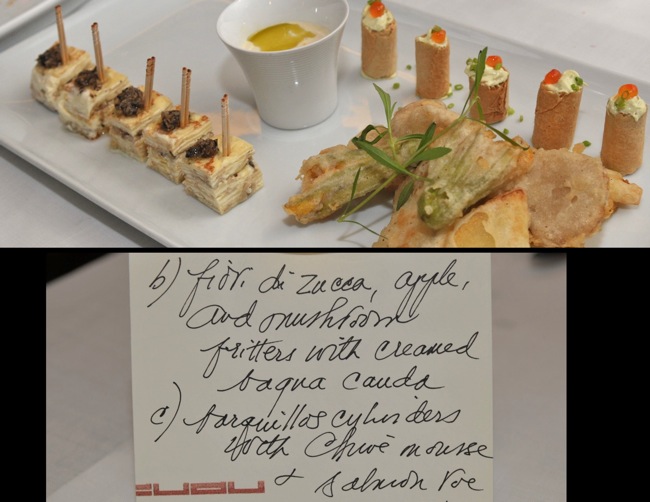 b) fiori di zucca, apple,
and mushroom
fritters with creamed
bagna cauda
c) barquillos cylinders
with Chive mousse
+ salmon roe